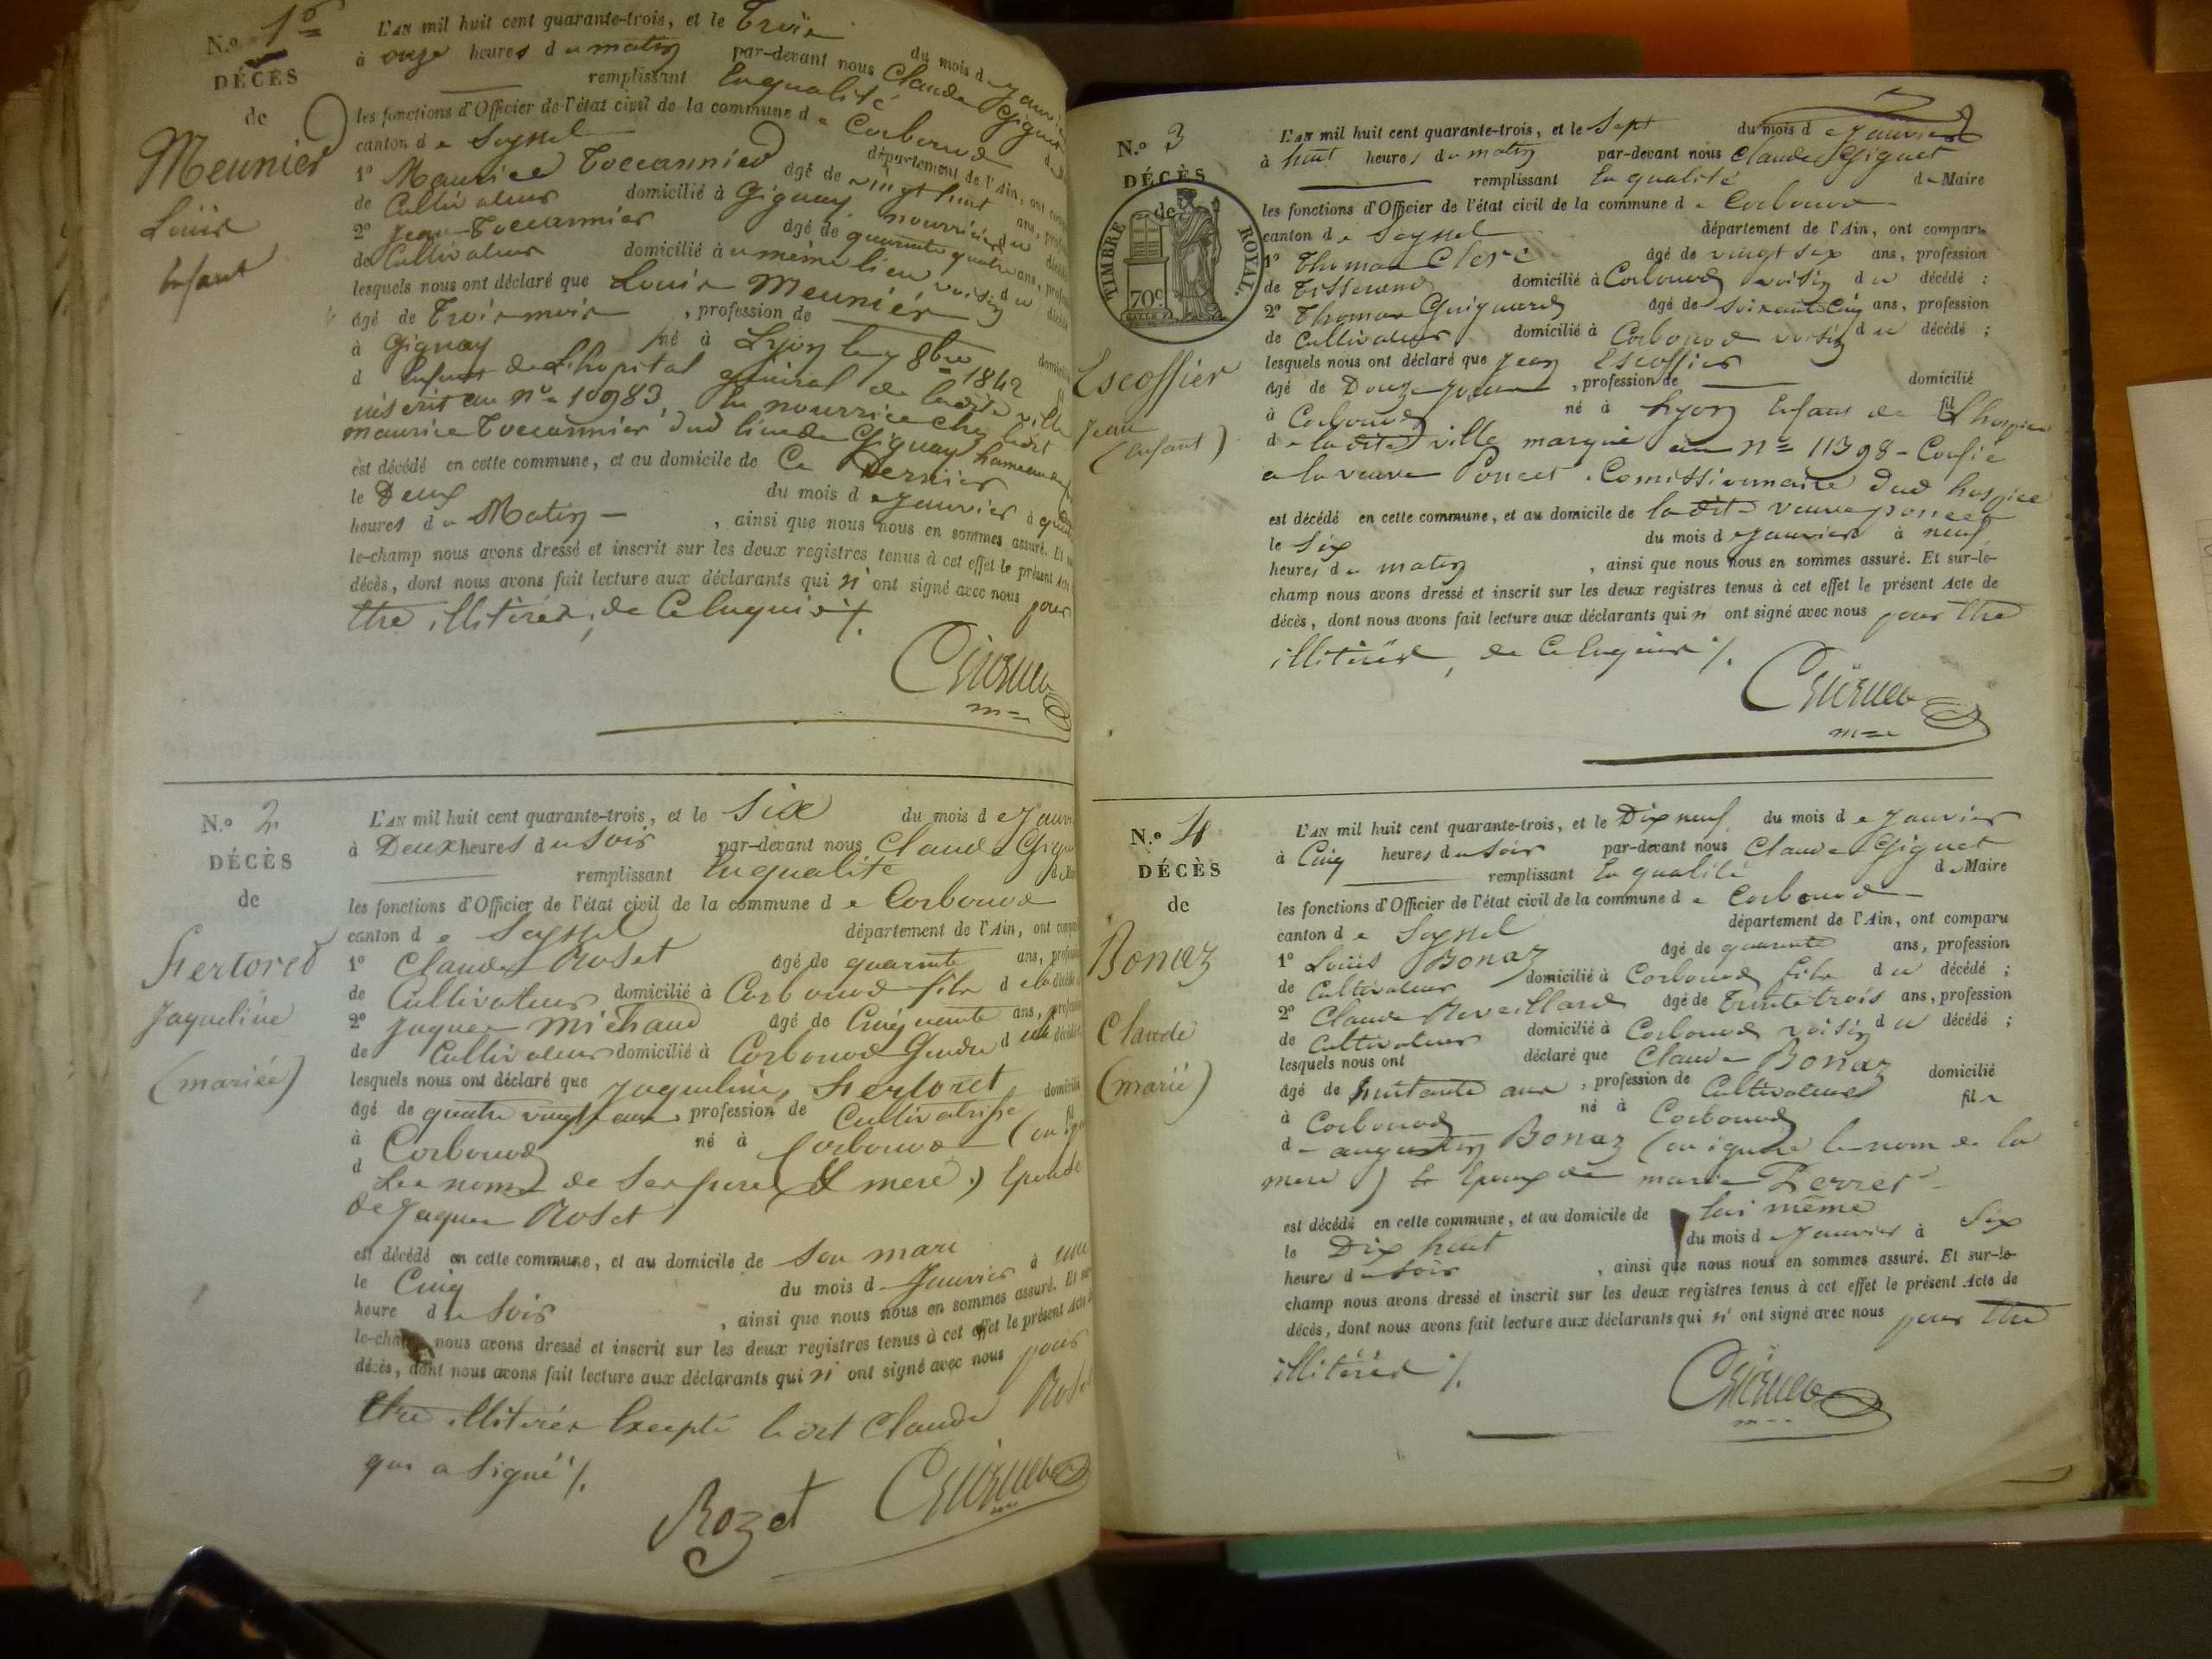 N.o 1er
DÉCÈS
de
Meunier
Louis
Enfant
L'AN mil huit cent quarante-trois, et le Trois du mois de Janvier
à onze heures du matin par-devant nous Claude Giguet
remplissant En qualité
les fonctions d'Officier de l'état civil de la commune de Corbonod
canton de Seyssel département de l'Ain, ont
1o Maurice Toccannier âgé de vingt huit ans,
de Cultivateur domicilié à Gignay nourricier du
2o Jean Toccannier âgé de quarante quatre ans,
de Cultivateur domicilié au même lieu voisin du
lesquels nous ont déclaré que Louis Meunier
âgé de Trois mois , profession de
à Gignay né à Lyon le 7 8bre 1842
d Enfant de L'hopital général de ladite ville
inscrit au no 10983, En nourrice chez ledit
maurice Toccannier dud lieu de Gignay hameau
est décédé en cette commune, et au domicile de Ce Dernier
le Deux du mois de Janvier à
heures du Matin — , ainsi que nous nous en sommes assuré. Et
le-champ nous avons dressé et inscrit sur les deux registres tenus à cet effet le présent Acte
décès, dont nous avons fait lecture aux déclarants qui n'ont signé avec nous pour
Etre illitérés, de Ce Enquis ./.
N.o 2
DÉCÈS
de
Fertoret
Jaqueline
(mariée)
L'AN mil huit cent quarante-trois, et le Six du mois de
à Deux heures du Soir par-devant nous Claude
remplissant En qualité
les fonctions d'Officier de l'état civil de la commune de Corbonod
canton de Seyssel département de l'Ain, ont
1o Claude Roset âgé de quarante ans,
de Cultivateur domicilié à Corbonod fils de la
2o Jaques Michaud âgé de Cinquante ans,
de Cultivateur domicilié à Corbonod Gendre d
lesquels nous ont déclaré que Jaqueline Fertoret
âgé de quatre vingt ans profession de Cultivatrisse
à Corbonod né à Corbonod (on
d Les noms de Ses pere & mere) Epouse
de Jaques Roset
est décédé en cette commune, et au domicile de Son mari
le Cinq du mois d Janvier à une
heure du Soir , ainsi que nous nous en sommes assuré. Et
le-champ nous avons dressé et inscrit sur les deux registres tenus à cet effet le présent Acte
décès, dont nous avons fait lecture aux déclarants qui n'ont signé avec nous pour
Etre illitérés Excepté ledit Claude
qui a Signé ./.
Rozet
N.o 3
DÉCÈS
de
TIMBRE ROYAL.
70c
Escoffier
Jean
(enfant)
L'AN mil huit cent quarante-trois, et le Sept du mois de Janvier
à huit heures du matin par-devant nous Claude Giguet
remplissant En qualité de Maire
les fonctions d'Officier de l'état civil de la commune de Corbonod
canton de Seyssel département de l'Ain, ont comparu
1o Thomas Clerc âgé de vingt six ans, profession
de Tisserand domicilié à Corbonod voisin du décédé ;
2o Thomas Guiguard âgé de Soixante Cinq ans, profession
de Cultivateur domicilié à Corbonod voisin du décédé ;
lesquels nous ont déclaré que Jean Escoffier
âgé de Douze jours , profession de domicilié
à Corbonod né à Lyon Enfant de fil L'hospice
de ladite ville marqué au no 11398 - Confié
a la veuve Poncet Comissionnaire dud hospice
est décédé en cette commune, et au domicile de ladite veuve poncet
le Six du mois de Janvier à neuf
heures du matin , ainsi que nous nous en sommes assuré. Et sur-le-
champ nous avons dressé et inscrit sur les deux registres tenus à cet effet le présent Acte de
décès, dont nous avons fait lecture aux déclarants qui n'ont signé avec nous pour Etre
illitérés, de Ce Enquis ./.
N.o 4
DÉCÈS
de
Bonaz
Claude
(marié)
L'AN mil huit cent quarante-trois, et le Dix neuf du mois de Janvier
à Cinq heures du Soir par-devant nous Claude Giguet
remplissant En qualité de Maire
les fonctions d'Officier de l'état civil de la commune de Corbonod
canton de Seyssel département de l'Ain, ont comparu
1o Louis Bonaz âgé de quarante ans, profession
de Cultivateur domicilié à Corbonod fils du décédé ;
2o Claude Reveillard âgé de Trente trois ans, profession
de Cultivateur domicilié à Corbonod voisin du décédé ;
lesquels nous ont déclaré que Claude Bonaz
âgé de huitante ans , profession de Cultivateur domicilié
à Corbonod né à Corbonod fils
d augustin Bonaz (on ignore le nom de la
mere) Et Epoux de marie Perret
est décédé en cette commune, et au domicile de lui même
le Dix huit du mois de Janvier à Six
heures du Soir , ainsi que nous nous en sommes assuré. Et sur-le-
champ nous avons dressé et inscrit sur les deux registres tenus à cet effet le présent Acte de
décès, dont nous avons fait lecture aux déclarants qui n'ont signé avec nous pour Etre
illitérés ./.